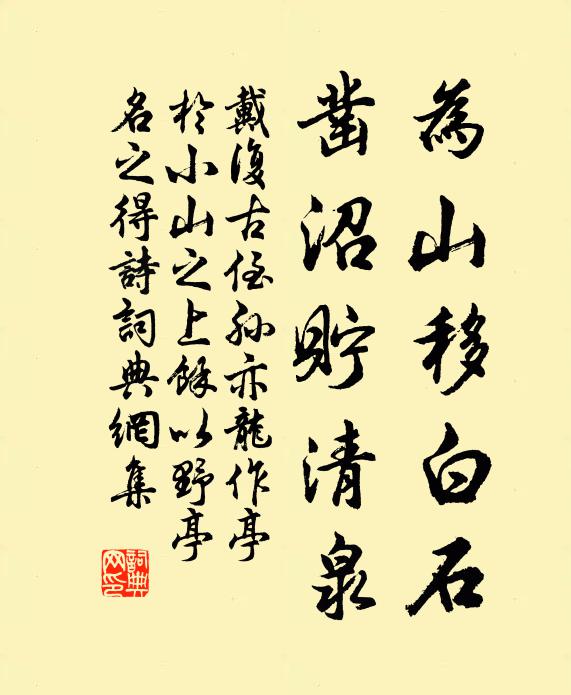 為山移白石
鑿沼貯清泉
戴復古侄孫亦龍作亭
於小山之上餘以野亭
名之得詩詞典網集
詞典
网印